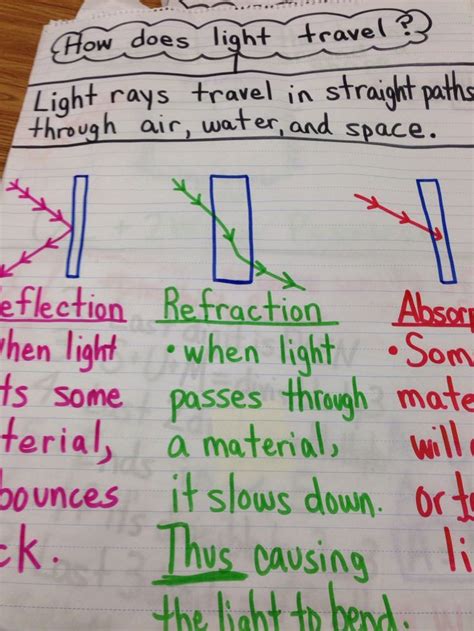 How does light travel?
Light rays travel in straight paths
through air, water, and space.
eflection
when light
ts some
terial,
bounces
ck.
Refraction
• when light
passes through
a material,
it slows down.
Thus causing
the light to bend.
Absorp
• Som
mate
will
or t
li